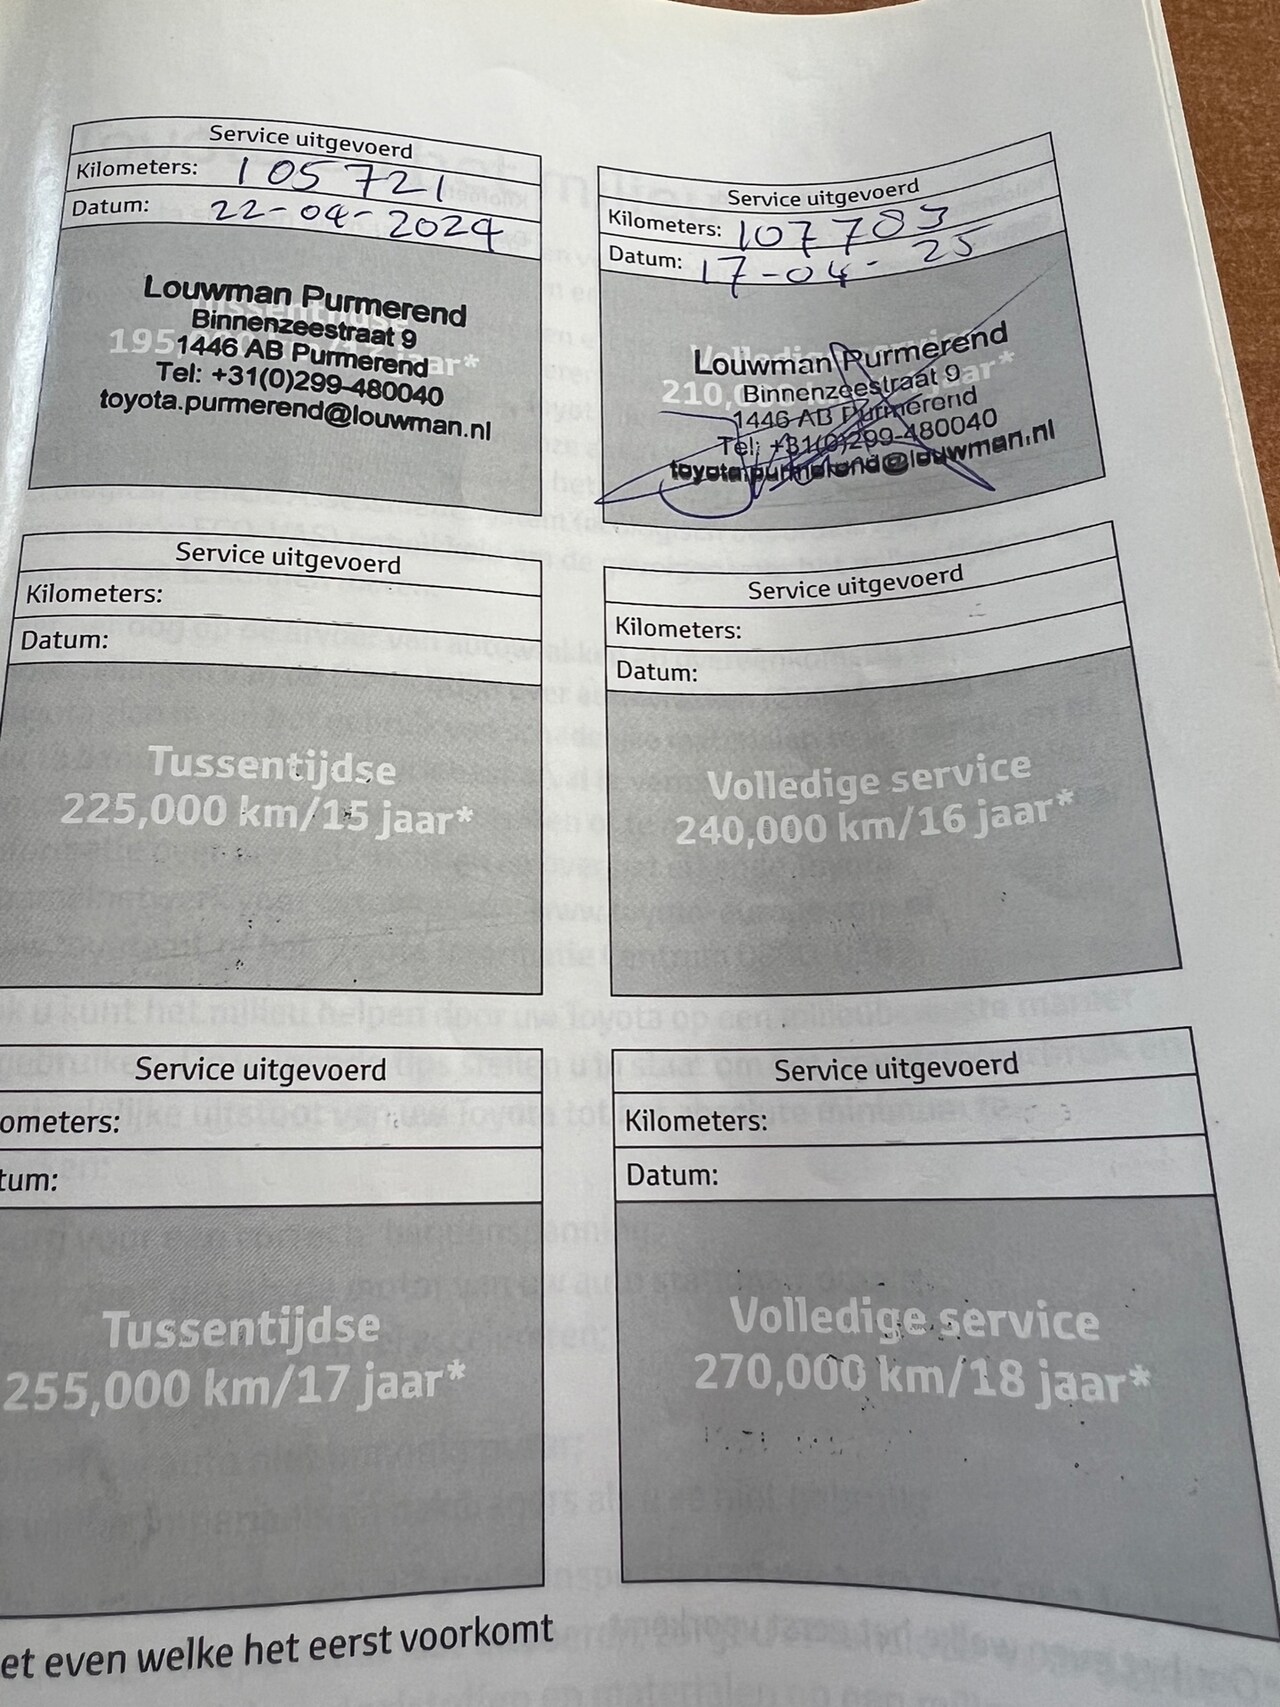 Service uitgevoerd
Kilometers: 105721
Datum: 22-04-2024
Louwman Purmerend
Binnenzeestraat 9
1446 AB Purmerend
Tel: +31(0)299-480040
toyota.purmerend@louwman.nl
Tussentijdse
195, jaar*
Service uitgevoerd
Kilometers: 107783
Datum: 17-04-25
Louwman Purmerend
Binnenzeestraat 9
1446 AB Purmerend
Tel: +31(0)299-480040
toyota.purmerend@louwman.nl
Volledige service
210,000 jaar*
Service uitgevoerd
Kilometers:
Datum:
Tussentijdse
225,000 km/15 jaar*
Service uitgevoerd
Kilometers:
Datum:
Volledige service
240,000 km/16 jaar*
Service uitgevoerd
ometers:
tum:
Tussentijdse
255,000 km/17 jaar*
Service uitgevoerd
Kilometers:
Datum:
Volledige service
270,000 km/18 jaar*
et even welke het eerst voorkomt